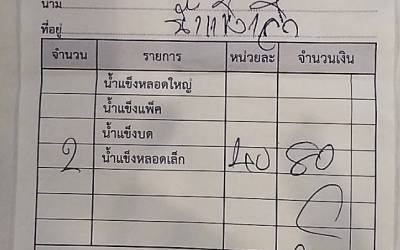 นาม
ที่อยู่
จำนวน รายการ หน่วยละ จำนวนเงิน
น้ำแข็งหลอดใหญ่
น้ำแข็งแพ็ค
น้ำแข็งบด
2 น้ำแข็งหลอดเล็ก 40 80